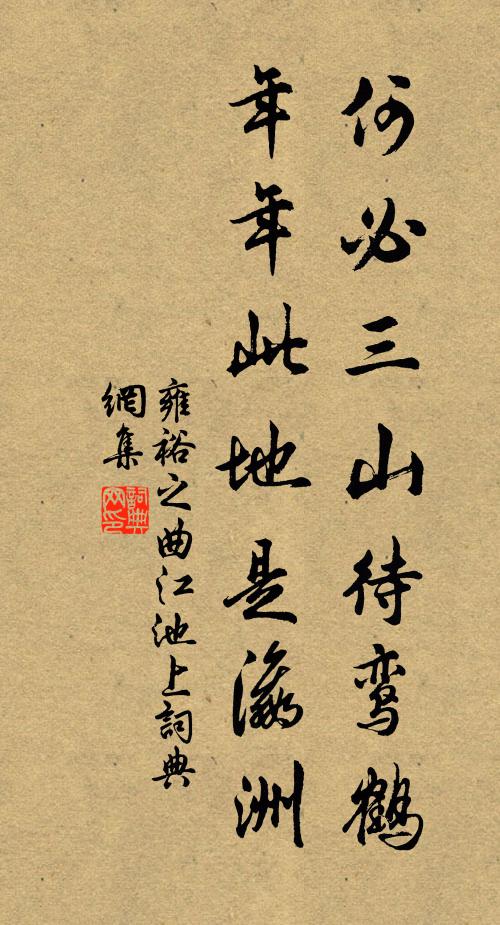 何必三山待鸾鹤
年年此地是瀛洲
雍裕之曲江池上詞典
網集
詞典网印